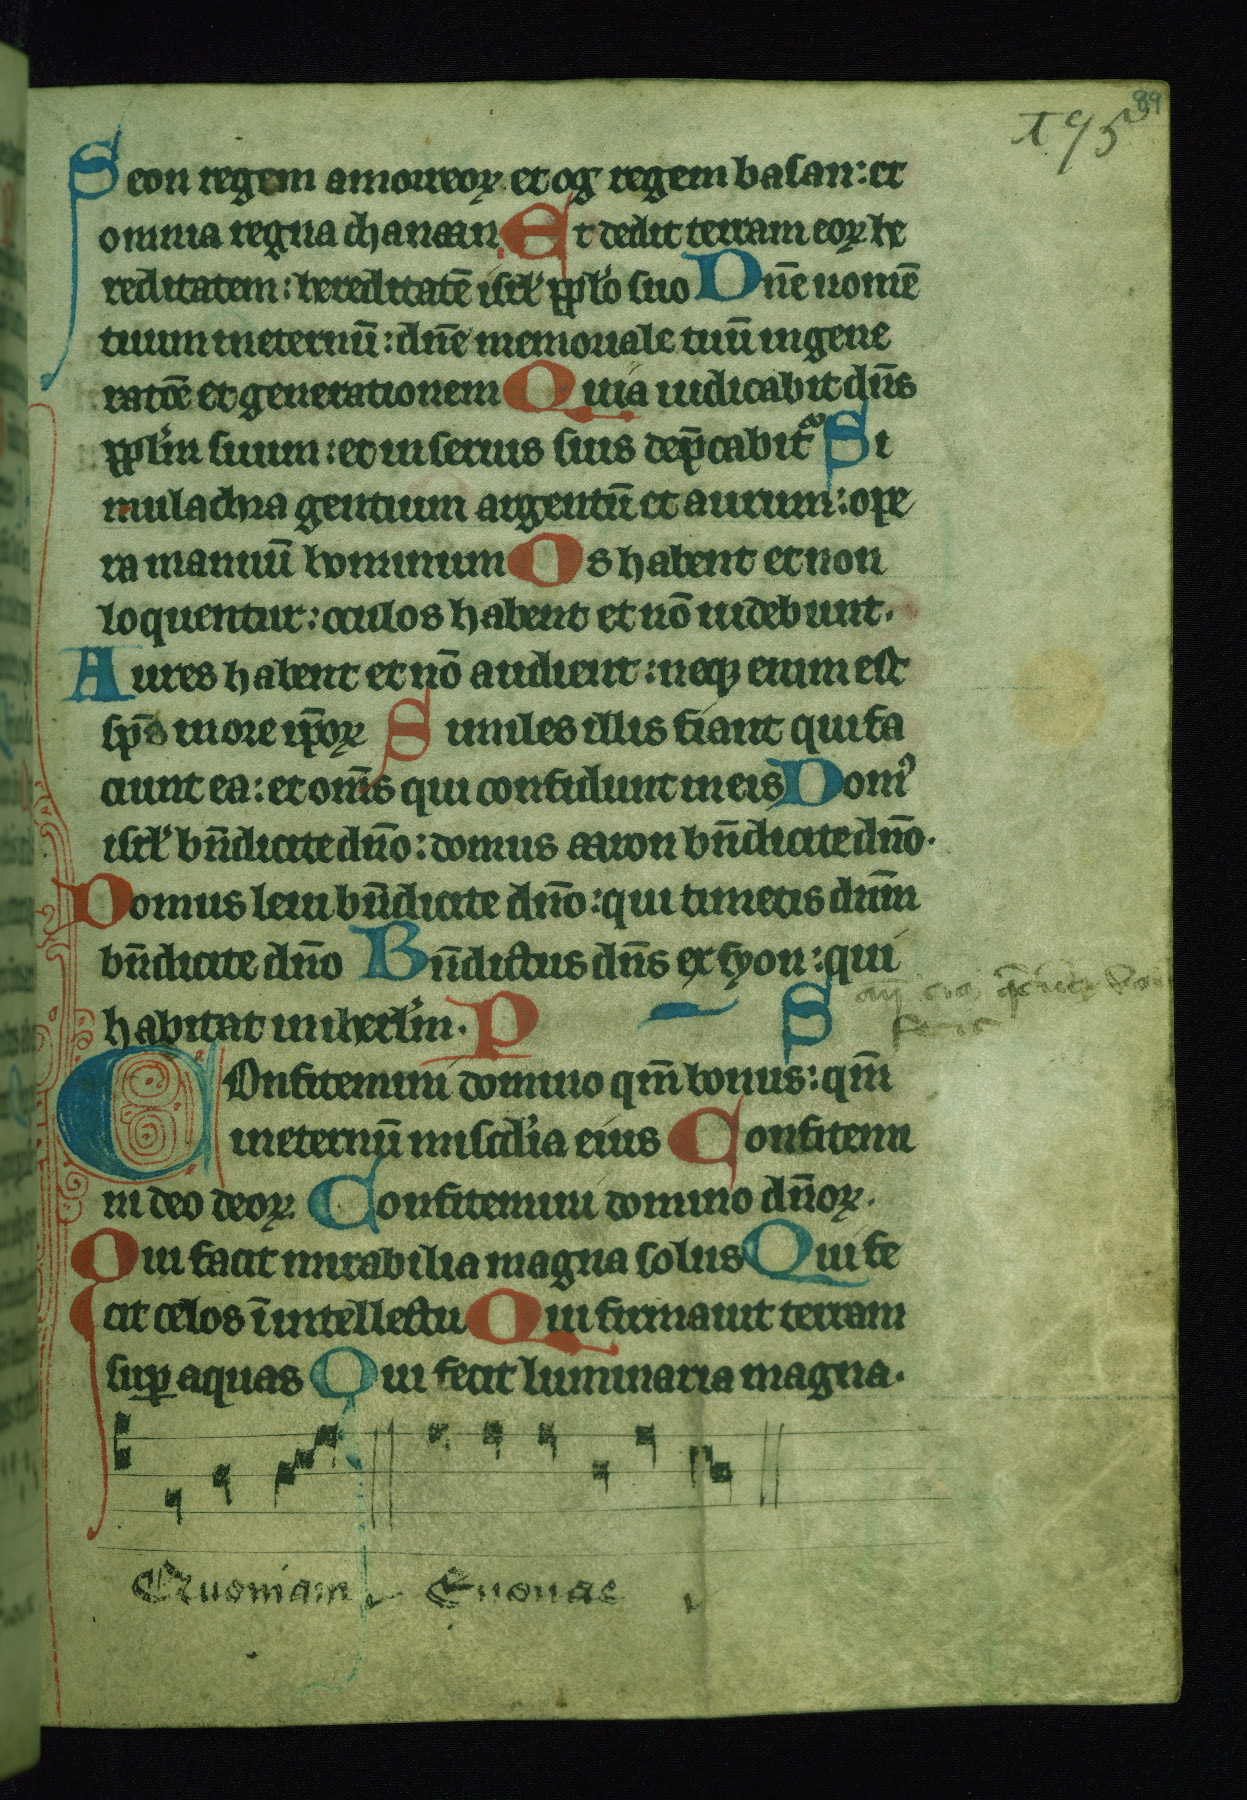 89
195
Seon regem amorreoꝝ et og regem basan: et
omnia regna chanaan Et dedit terram eoꝝ he
reditatem: hereditatē isrl' ppl'o suo Dn̄e nomē
tuum in eternū: dn̄e memoriale tuū in gene
ratōe et generationem Quia iudicabit dn̄s
ppl'm suum: et in seruis suis dep̄cabit᷑ Si
mulachra gentium argentū et aurum: ope
ra manuū hominum Os habent et non
loquentur: oculos habent et nō uidebunt.
Aures habent et nō audient: neqꝫ enim est
sp̄s in ore ip̄oꝝ Similes illis fiant qui fa
ciunt ea: et om̄s qui confidunt in eis Domꝰ
isrl' bn̄dicite dn̄o: domus aaron bn̄dicite dn̄o.
Domus leui bn̄dicite dn̄o: qui timetis dn̄m
bn̄dicite dn̄o Bn̄dictus dn̄s ex syon: qui
habitat in iherl'm. P S
Confitemini domino qm̄ bonus: qm̄
in eternū mis'cd'ia eius Confitemi
ni deo deoꝝ. Confitemini domino dn̄oꝝ.
Qui facit mirabilia magna solus Qui fe
cit celos ī intellectu Qui firmauit terram
suꝑ aquas Qui fecit luminaria magna.
Quoniam Euouae